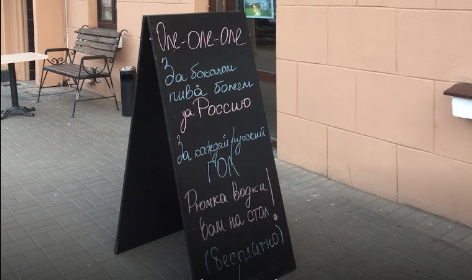 Оле-оле-оле
За бокалом
пива болеем
за Россию
За каждый русский
ГОЛ
Рюмка водки
вам на стол!
(бесплатно)